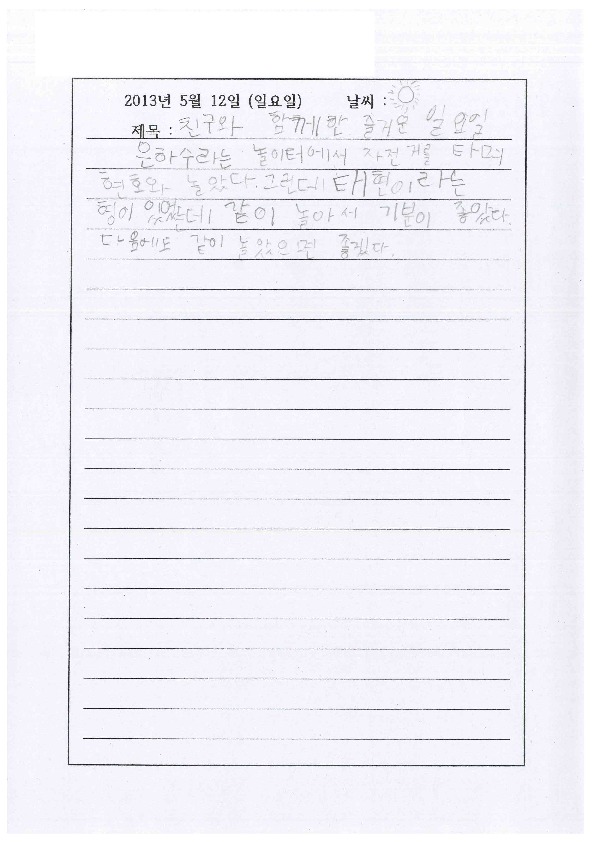 2013년 5월 12일 (일요일) 날씨 :
제목 : 친구와 함께한 즐거운 일요일
은하수라는 놀이터에서 자전거를 타며
현호와 놀았다. 그런데 태현이라는
형이 있었는데 같이 놀아서 기분이 좋았다.
다음에도 같이 놀았으면 좋겠다.